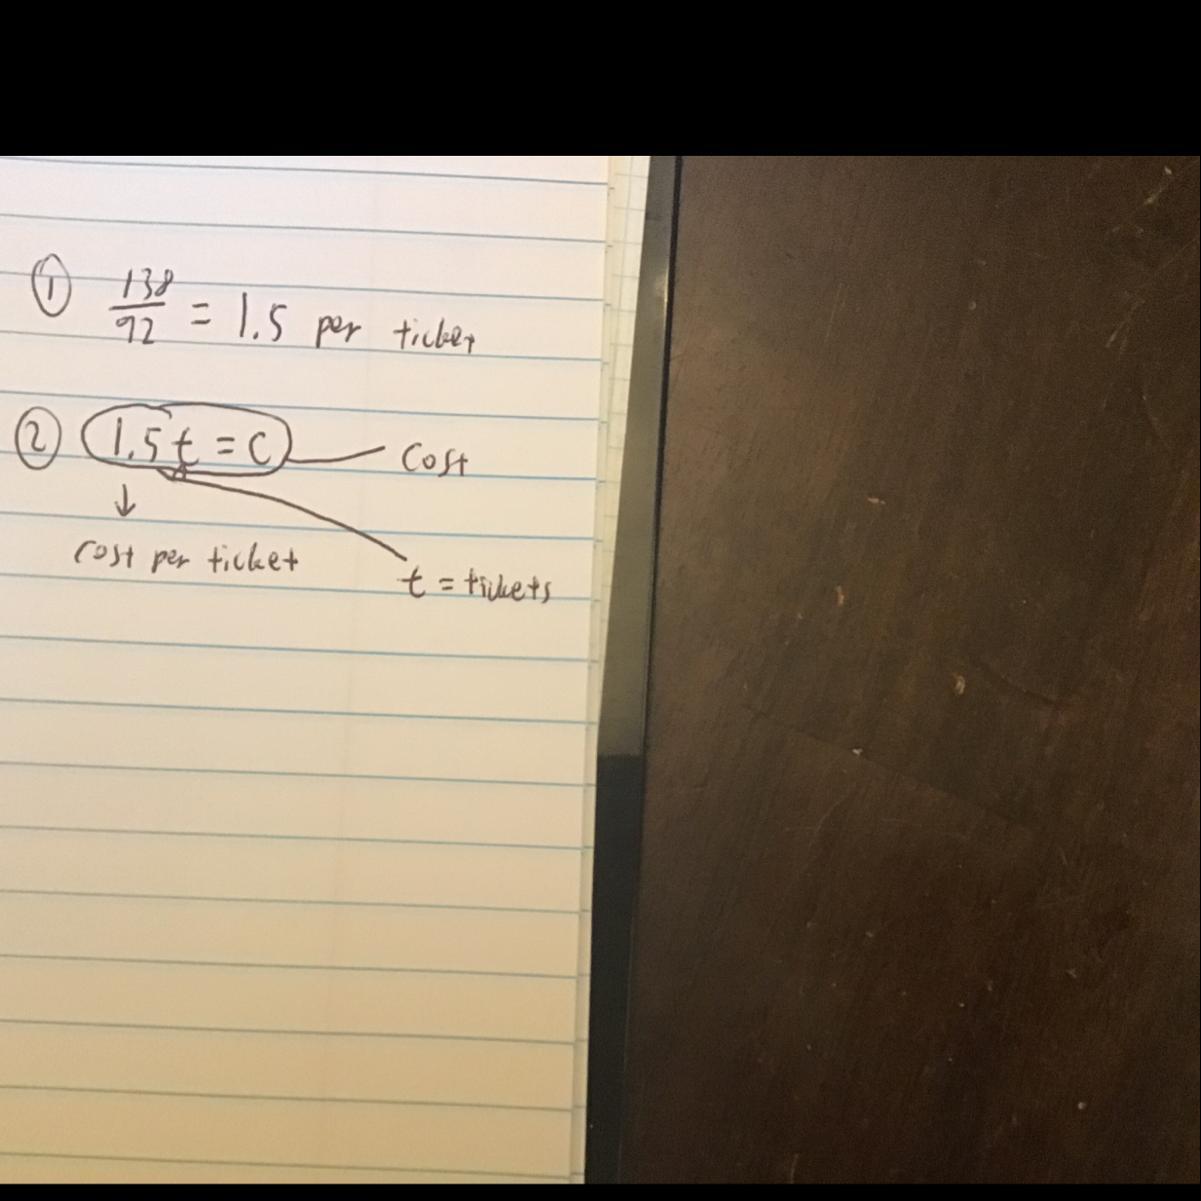 ① 138/92 = 1.5 per ticket
② 1.5t = C
Cost
↓
cost per ticket
t = tickets